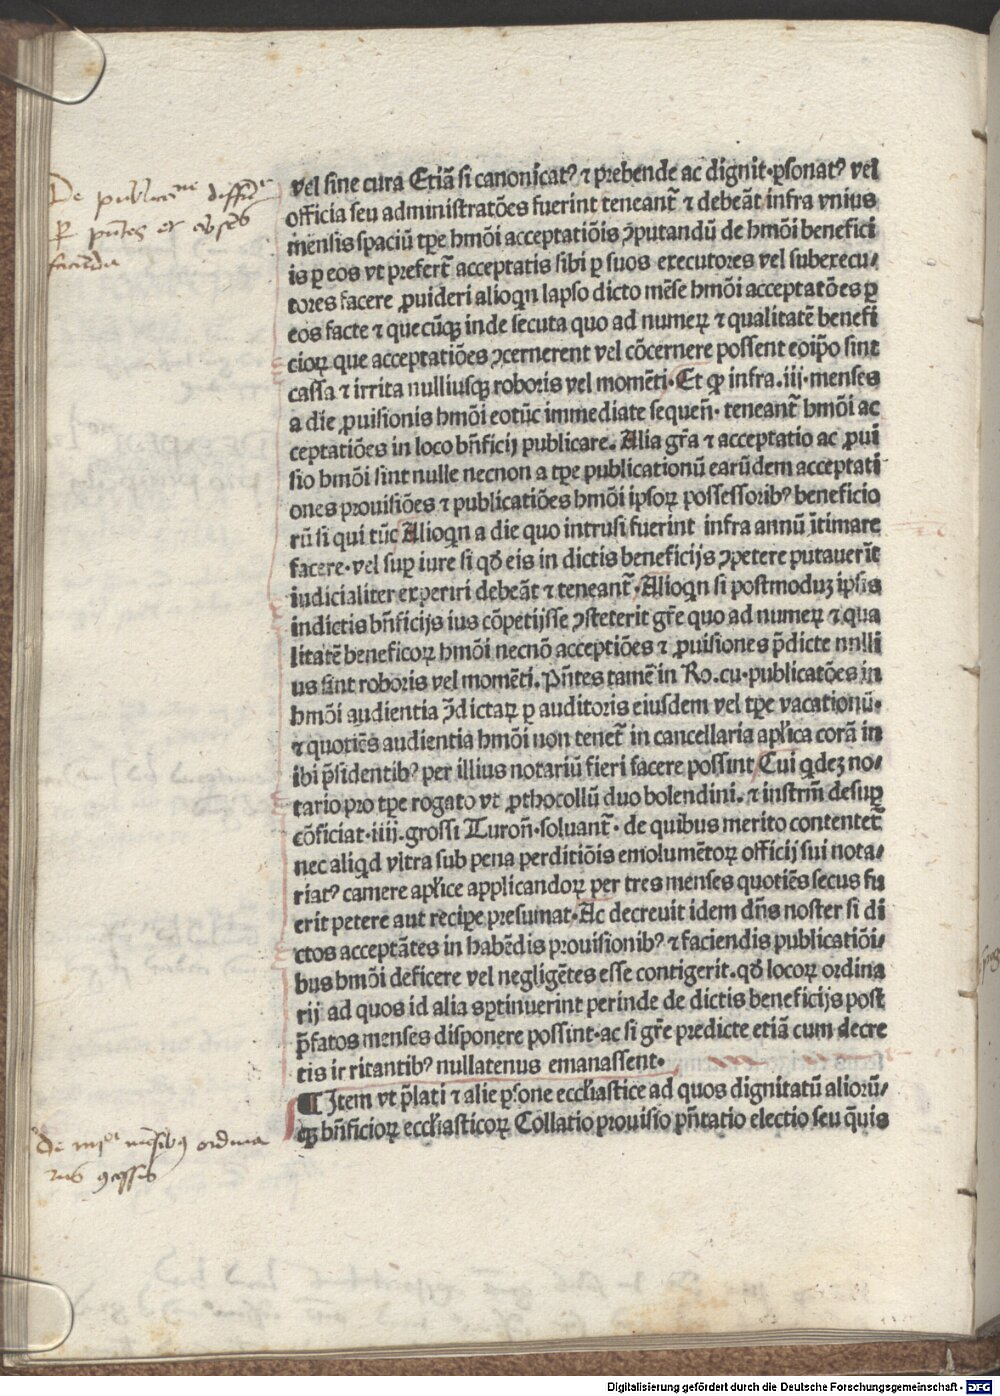 De publicatne diffinde
per pntes et absetes
facienda
vel sine cura Etiã si canonicatꝰ ⁊ prebende ac dignit·ꝑsonatꝰ vel
officia seu administratões fuerint teneant̃ ⁊ debeãt infra vnius
mensis spaciũ tꝑe hmõi acceptatiõis ꝯputandũ de hmõi benefici
is ꝑ eos vt prefert̃ acceptatis sibi ꝑ suos executores vel subexecu⸗
tores facere ꝓuideri alioqn lapso dicto mẽse hmõi acceptatões ꝑ
eos facte ⁊ quecũqꝫ inde secuta quo ad numeꝝ ⁊ qualitatẽ benefi
cioꝝ que acceptatiões ꝯcernerent vel cõcernere possent eoip̃o sint
cassa ⁊ irrita nulliusqꝫ roboris vel momẽti·Et ꝙ infra.iij·menses
a die ꝓuisionis hmõi eotũc immediate sequeñ· teneant̃ hmõi ac
ceptatiões in loco bñficij publicare. Alia gr̃a ⁊ acceptatio ac ꝓui
sio hmõi sint nulle necnon a tꝑe publicationũ earũdem acceptati
ones prouisiões ⁊ publicatiões hmõi ipsoꝝ possessoribꝰ beneficio
rũ si qui tũc Alioqn a die quo intrusi fuerint infra annũ ĩtimare
facere·vel suꝑ iure si qđ eis in dictis beneficijs ꝯpetere putauerĩt
iudicialiter experiri debeãt ⁊ teneant̃·Alioqn si postmoduꝫ ipsis
indictis bñficijs ius cõpetijsse ꝯsteterit gr̃e quo ad numeꝝ ⁊ qua
litatẽ beneficoꝝ hmõi necnõ acceptiões ⁊ ꝓuisiones p̃dicte nnlli
us sint roboris vel momẽti. Pñtes tamẽ in Ro.cu·publicatões in
hmõi audientia ꝯ̃dictaꝝ ꝑ auditoris eiusdem vel tꝑe vacationũ·
⁊ quotiẽs audientia hmõi non tenet̃ in cancellaria apl̃ica corã in
ibi p̃sidentibꝰ per illius notariũ fieri facere possint Cui qdeꝫ no⸗
tario pro tꝑe rogato vt ꝓthocollũ duo bolendini. ⁊ instrm̃ desuꝑ
cõficiat·iiij.grossi Turoñ·soluant̃· de quibus merito contentet̃
nec aliqd vltra sub pena perditiõis emolumẽtoꝝ officij sui nota⸗
riatꝰ camere apl̃ice applicandoꝝ per tres menses quotiẽs secus fu
erit petere aut recipe presumat·Ac decreuit idem dñs noster si di
ctos acceptãtes in habẽdis prouisionibꝰ ⁊ faciendis publicatiõi⸗
bus hmõi deficere vel negligẽtes esse contigerit.qđ locoꝝ ordina
rij ad quos id alia sꝑtinuerint perinde de dictis beneficijs post
p̃fatos menses disponere possint·ac si gr̃e predicte etiã cum decre
tis ir ritantibꝰ nullatenus emanassent·
¶ Item vt p̃lati ⁊ alie ꝑsone eccl̃iastice ad quos dignitatũ aliorũ⸗
qꝫ bñficioꝝ eccl̃iasticoꝝ Collatio prouisio pñtatio electio seu q̃uis
de iiiior mẽsibꝯ ordina
riis ꝯcessis
Digitalisierung gefördert durch die Deutsche Forschungsgemeinschaft - DFG